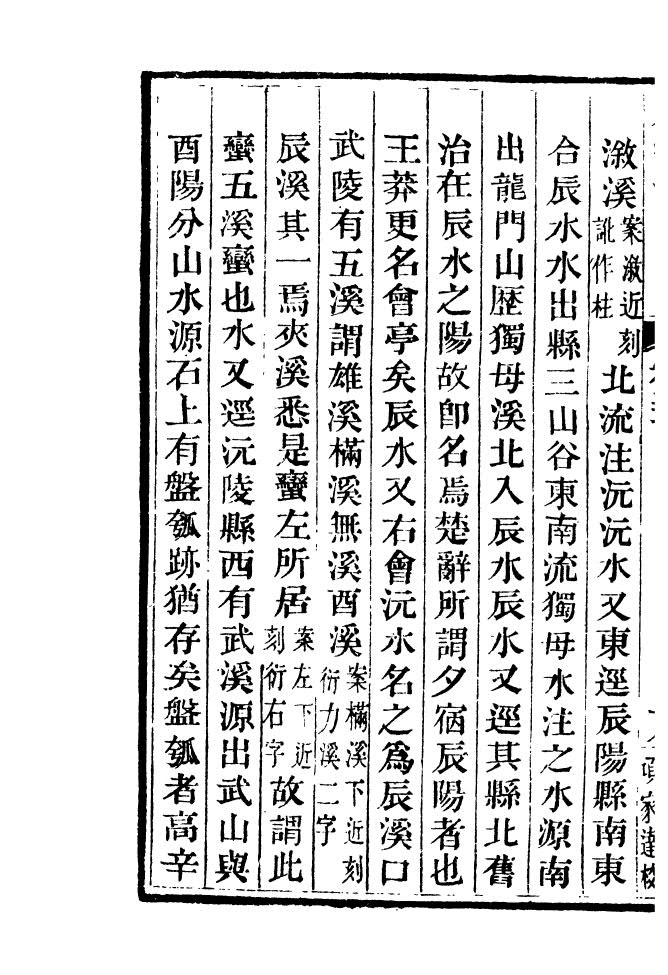 漵溪案漵近刻訛作柱北流注沅沅水又東逕辰陽縣南東
合辰水水出縣三山谷東南流獨母水注之水源南
出龍門山歷獨母溪北入辰水辰水又逕其縣北舊
治在辰水之陽故卽名焉楚辭所謂夕宿辰陽者也
王莽更名會亭矣辰水又右會沅水名之爲辰溪口
武陵有五溪謂雄溪樠溪無溪酉溪案樠溪下近刻衍力溪二字
辰溪其一焉夾溪悉是蠻左所居案左下近刻衍右字故謂此
蠻五溪蠻也水又逕沅陵縣西有武溪源出武山與
酉陽分山水源石上有盤瓠跡猶存矣盤瓠者高辛